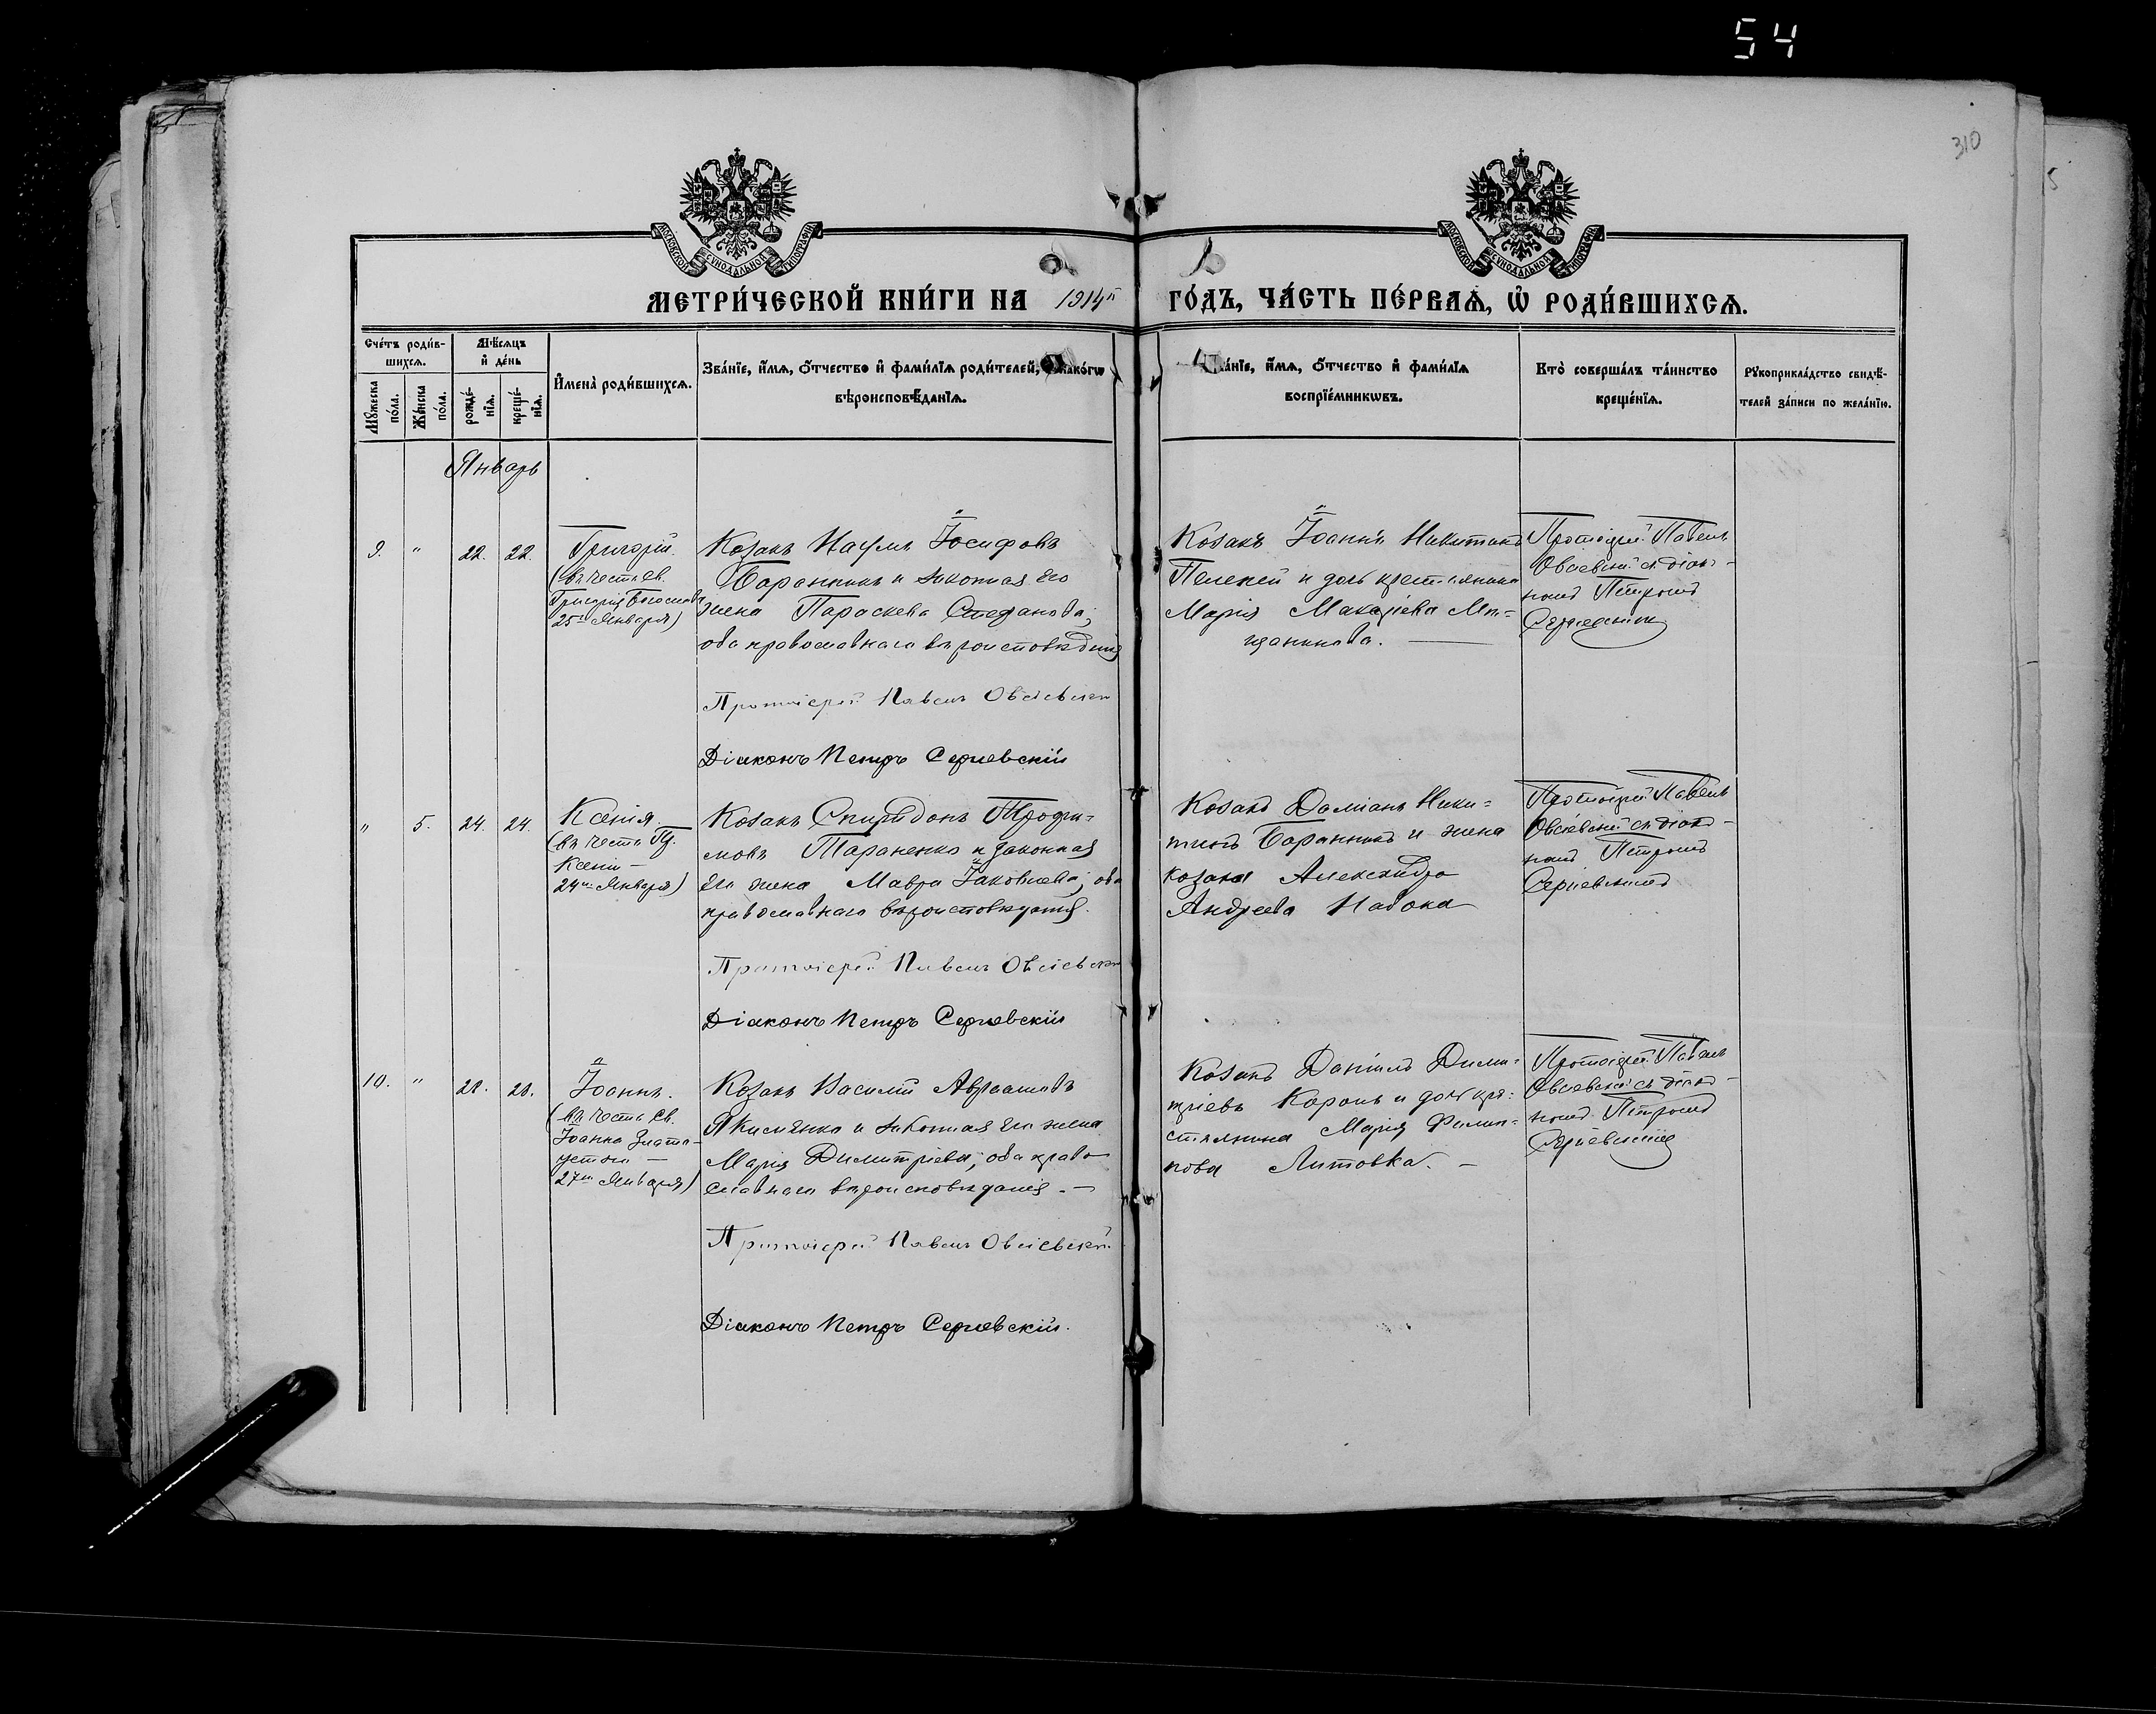 54
310
МОСКОВСКОЙ СѴНОДАЛЬНОЙ ТИПОГРАФІИ
МОСКОВСКОЙ СѴНОДАЛЬНОЙ ТИПОГРАФІИ
МЕТРИ́ЧЕСКОЙ КНИ́ГИ НА 1914й ГО́ДЪ, ЧА́СТЬ ПЕ́РВАѦ, Ѡ҆ РОДИ́ВШИХСѦ.
Сче́тъ роди́в-
шихсѧ.
Мꙋ́жеска по́ла.
Же́нска по́ла.
Мѣ́сѧцъ
и҆ де́нь
рожде́-
нїѧ.
креще́-
нїѧ.
И҆мена̀ роди́вшихсѧ.
Зва́нїе, и҆́мѧ, ѻ҆́тчество и҆ фами́лїѧ роди́телей, и҆ како́гѡ
вѣроисповѣ́данїѧ.
Зва́нїе, и҆́мѧ, ѻ҆́тчество и҆ фами́лїѧ
воспрїе́мникѡвъ.
Кто̀ соверша́лъ та́инство
креще́нїѧ.
Рꙋкоприкла́дство свидѣ́-
телей за́писи по жела́нїю.
Январь
9. " 22. 22.
Григорій.
(въ честь св.
Григорія Богослова
25го Января)
Козакъ Наумъ Іосифовъ
Баранникъ и законная его
жена Параскева Стефанова;
оба православнаго вѣроисповѣданія
Протоіерей Павелъ Овсіевскій
Діаконъ Петръ Сергіевскій
Козакъ Іоаннъ Никитинъ
Пелехей и дочь крестьянина
Марія Макаріева
Протоіерей Павелъ
Овсіевскій съ діако-
номъ Петромъ
Сергіевскимъ
" 5. 24. 24.
Ксенія.
(въ честь Пр.
Ксеніи —
24го Января)
Козакъ Спиридонъ Трофи-
мовъ Тараненко и законная
его жена Мавра Іаковлева; оба
православнаго вѣроисповѣданія.
Протоіерей Павелъ Овсіевскій
Діаконъ Петръ Сергіевскій
Козакъ Даміанъ Ники-
тинъ Баранникъ и жена
козака Александра
Андреева Набока
Протоіерей Павелъ
Овсіевскій съ діако-
номъ Петромъ
Сергіевскимъ
10. " 28. 28.
Іоаннъ.
(въ честь Св.
Іоанна Злато-
устаго —
27го Января)
Козакъ Василій Авраамовъ
Якименко и законная его жена
Марія Димитріева; оба право-
славнаго вѣроисповѣданія. —
Протоіерей Павелъ Овсіевскій
Діаконъ Петръ Сергіевскій.
Козакъ Даніилъ Дими-
тріевъ Король и дочь кре-
стьянина Марія Филип-
пова Литовка. —
Протоіерей Павелъ
Овсіевскій съ діако-
номъ Петромъ
Сергіевскимъ